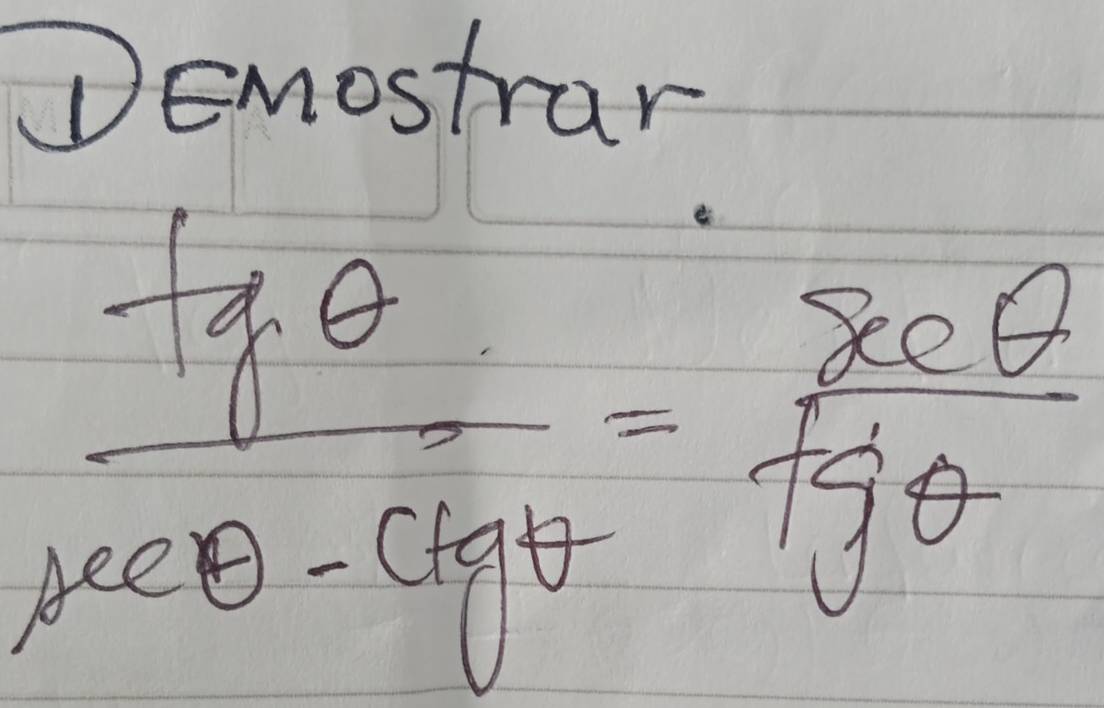 DEMostrar.
tg θ / sec θ - Ctg θ = sec θ / tg θ